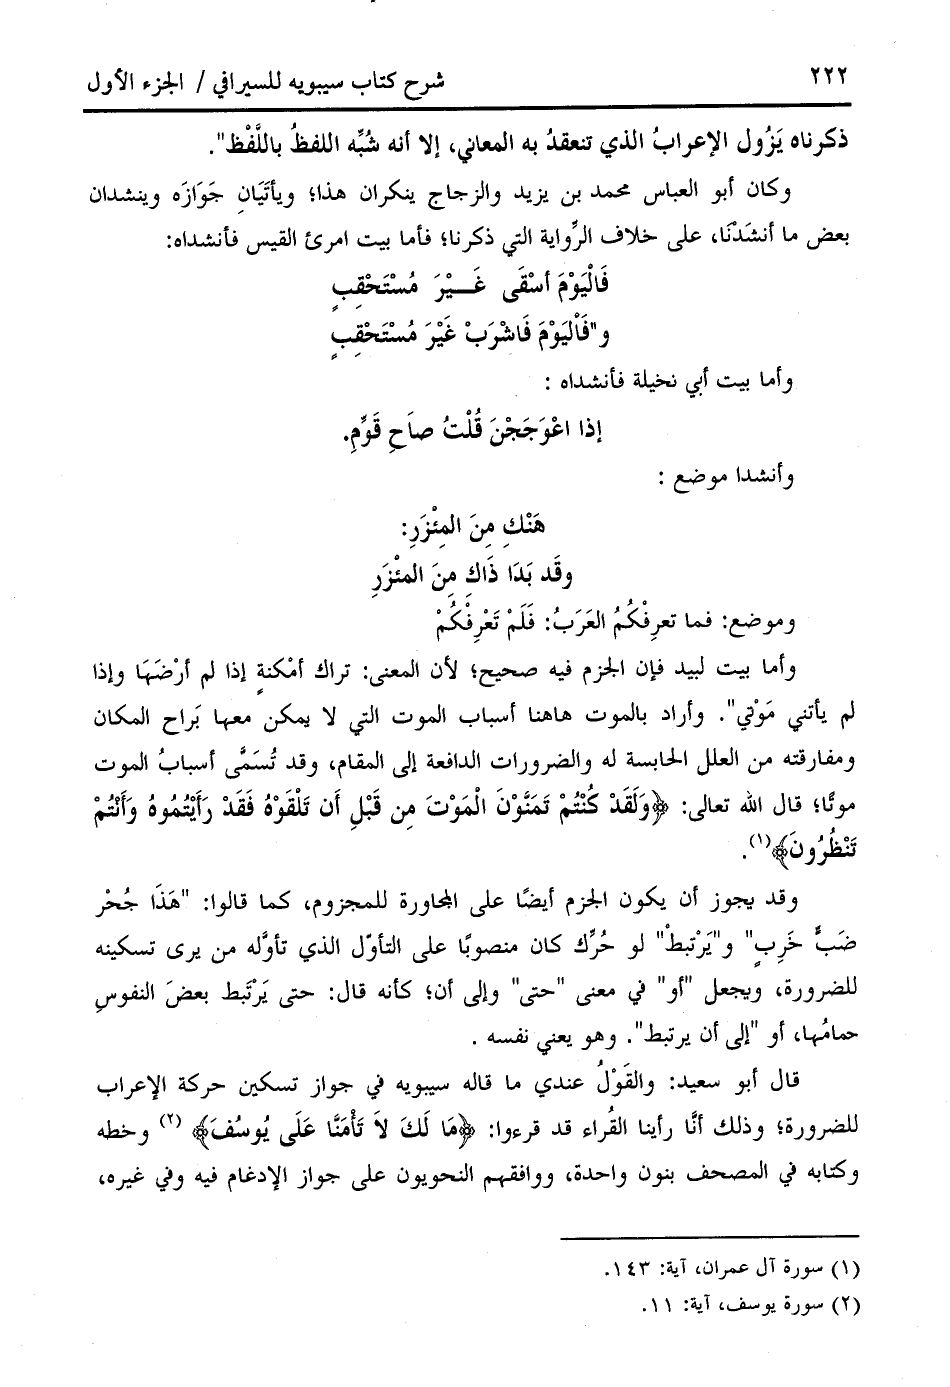 ٢٢٢
شرح كتاب سيبويه للسيرافي / الجزء الأول
ذكرناه يَزُول الإعرابُ الذي تنعقدُ به المعاني، إلا أنه شُبِّه اللفظُ باللَّفْظ".
وكان أبو العباس محمد بن يزيد والزجاج ينكران هذا؛ ويأتَيَانِ جَوَازَه وينشدان
بعض ما أنشَدْنَا، على خلاف الرِّواية التي ذكرنا؛ فأما بيت امرئ القيس فأنشداه:
فَالْيَوْمَ أسْقَى غَـــيْرَ مُسْتَحْقِبٍ
و"فَالْيَوْمَ فَاشْرَبْ غَيْرَ مُسْتَحْقِبٍ
وأما بيت أبي نخيلة فأنشداه :
إذا اعْوَجَجْنَ قُلْتُ صاَحِ قَوِّمِ.
وأنشدا موضع :
هَنْكِ مِنَ المِئْزَرِ:
وقَد بَدَا ذَاكِ مِنَ المئْزَرِ
وموضع: فما تعرِفْكُمُ العَرَبُ: فَلَمْ تَعْرِفْكُمْ
وأما بيت لبيد فإن الجزم فيه صحيح؛ لأن المعنى: تراك أمْكنةٍ إذا لم أرْضَهَا وإذا
لم يأتني مَوْتي". وأراد بالموت هاهنا أسباب الموت التي لا يمكن معها بَراح المكان
ومفارقته من العلل الحابسة له والضرورات الدافعة إلى المقام، وقد تُسَمَّى أسبابُ الموت
موتًا؛ قال الله تعالى: ﴿وَلَقَدْ كُنْتُمْ تَمَنَّوْنَ الْمَوْتَ مِن قَبْلِ أَن تَلْقَوْهُ فَقَدْ رَأَيْتُمُوهُ وَأَنْتُمْ
تَنْظُرُونَ﴾(١).
وقد يجوز أن يكون الجزم أيضًا على المجاورة للمجزوم، كما قالوا: "هَذَا جُحْر
ضَبٍّ خَرِبٍ" و"يَرْتبطْ" لو حُرِّك كان منصوبًا على التأوّل الذي تأوَّله من يرى تسكينه
للضرورة، ويجعل "أو" في معنى "حتى" وإلى أن؛ كأنه قال: حتى يَرْتَبط بعضَ النفوسِ
حمامُها، أو "إلى أن يرتبط". وهو يعني نفسه .
قال أبو سعيد: والقَوْلُ عندي ما قاله سيبويه في جواز تسكين حركة الإعراب
للضرورة؛ وذلك أنَّا رأينا القُراء قد قرءوا: ﴿مَا لَكَ لاَ تَأْمَنَّا عَلَى يُوسُفَ﴾ (٢) وخطه
وكتابه في المصحف بنون واحدة، ووافقهم النحويون على جواز الإدغام فيه وفي غيره،
(١) سورة آل عمران، آية: ١٤٣.
(٢) سورة يوسف، آية: ١١.